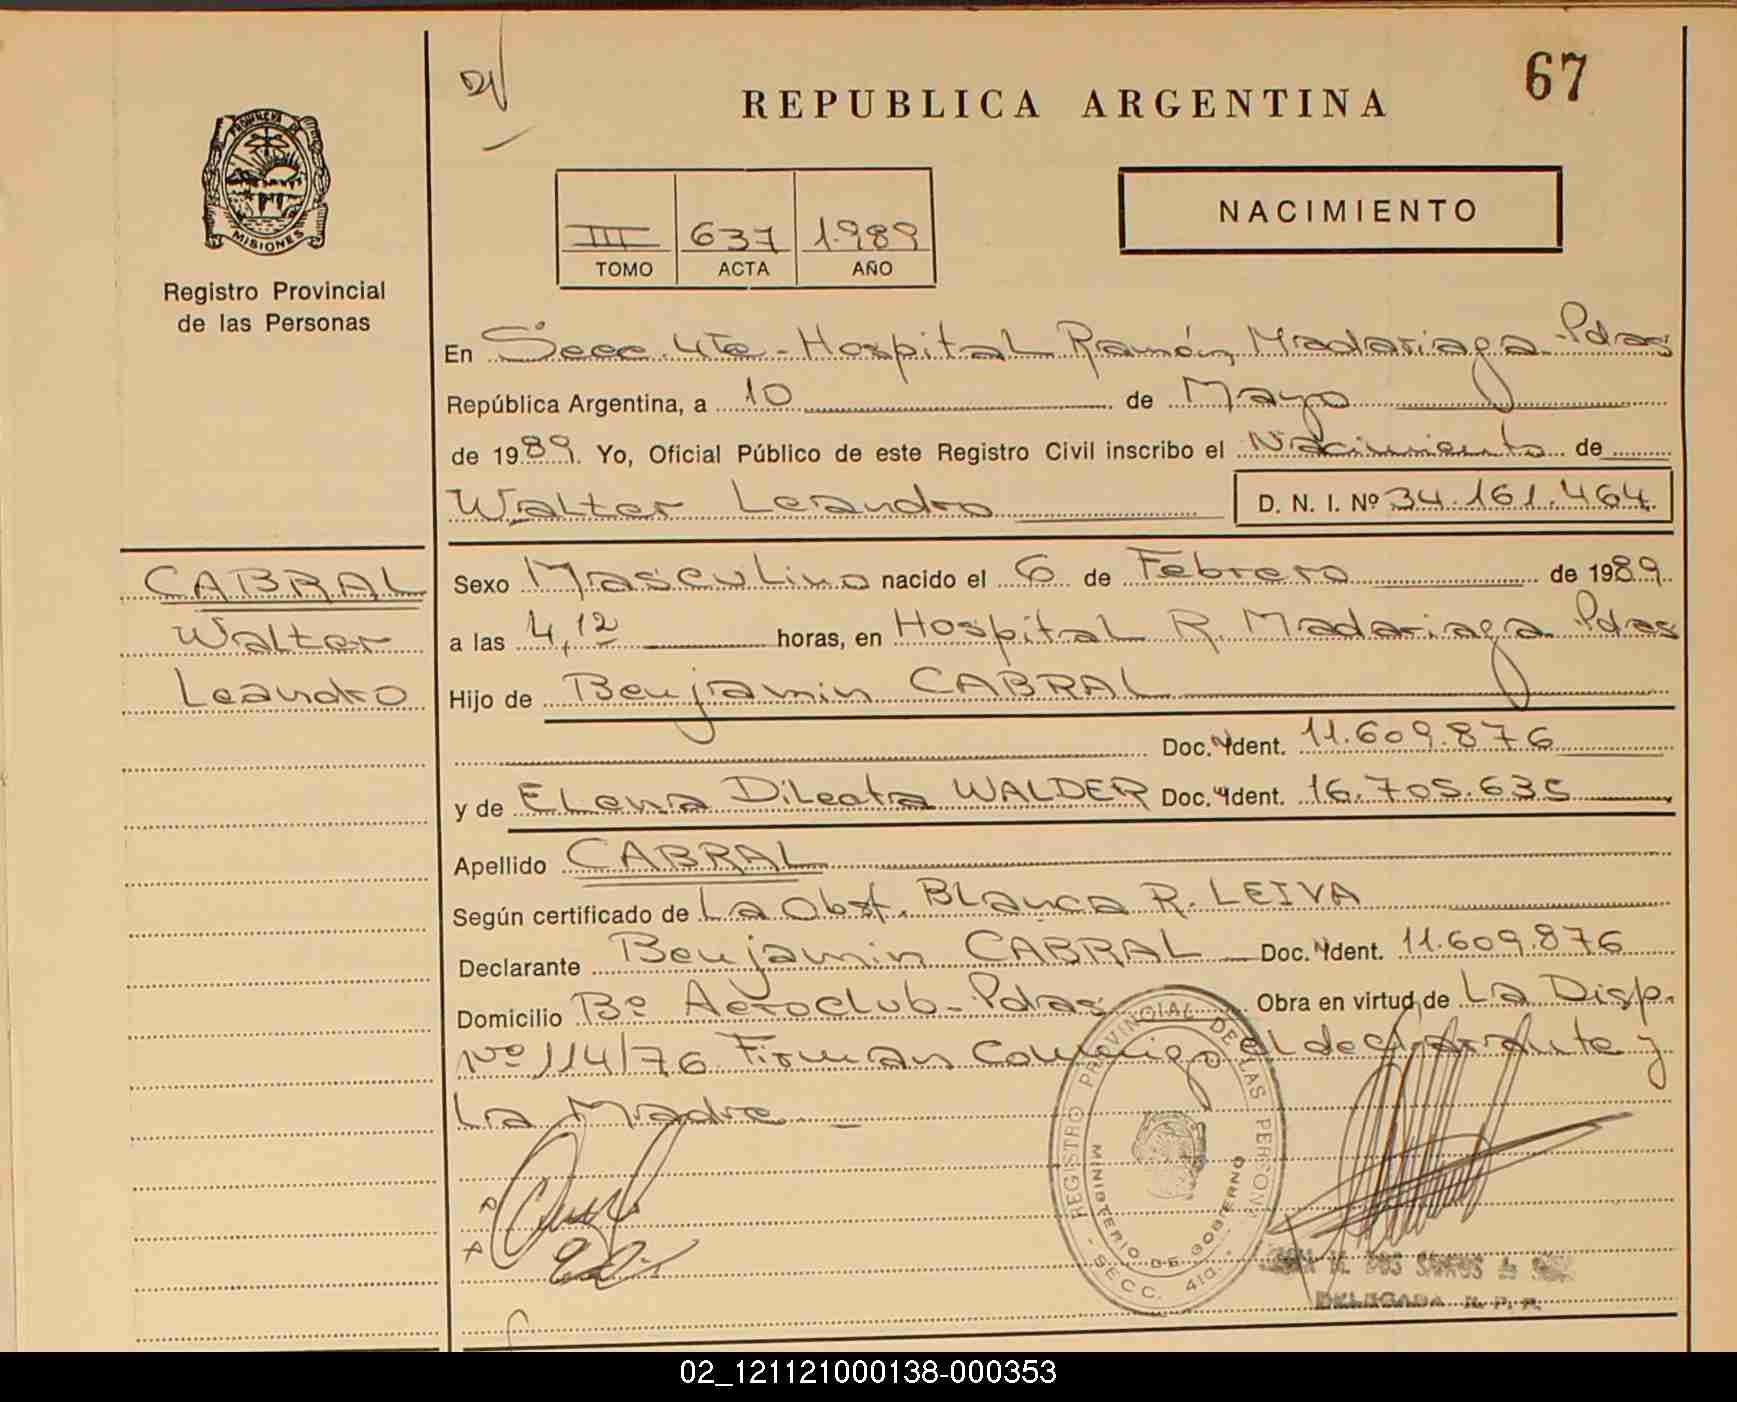 67
REPUBLICA ARGENTINA
PROVINCIA DE
MISIONES
Registro Provincial
de las Personas
NACIMIENTO
III 637 1.989
TOMO ACTA AÑO
En Secc. 4ta - Hospital Ramón Madariaga - Pdas
República Argentina, a 10 de Mayo
de 1989. Yo, Oficial Público de este Registro Civil inscribo el Nacimiento de
Walter Leandro D. N. I. Nº 34.161.464
CABRAL
Walter
Leandro
Sexo Masculino nacido el 6 de Febrero de 1989
a las 4,12 horas, en Hospital R. Madariaga Pdas
Hijo de Benjamin CABRAL
Doc. Ident. 11.609.876
y de Elena Dileota WALDER Doc. Ident. 16.705.635
Apellido CABRAL
Según certificado de La Obst. Blanca R. LEIVA
Declarante Benjamin CABRAL Doc. Ident. 11.609.876
Domicilio Bº Aeroclub - Pdas Obra en virtud de La Disp.
Nº 114/76 Firman Conmigo el declarante y
La Madre
REGISTRO PROVINCIAL DE LAS PERSONAS
MINISTERIO DE GOBIERNO
- SECC. 4ta. -
DOS SANTOS de
DELEGADA R. P. P.
02_121121000138-000353